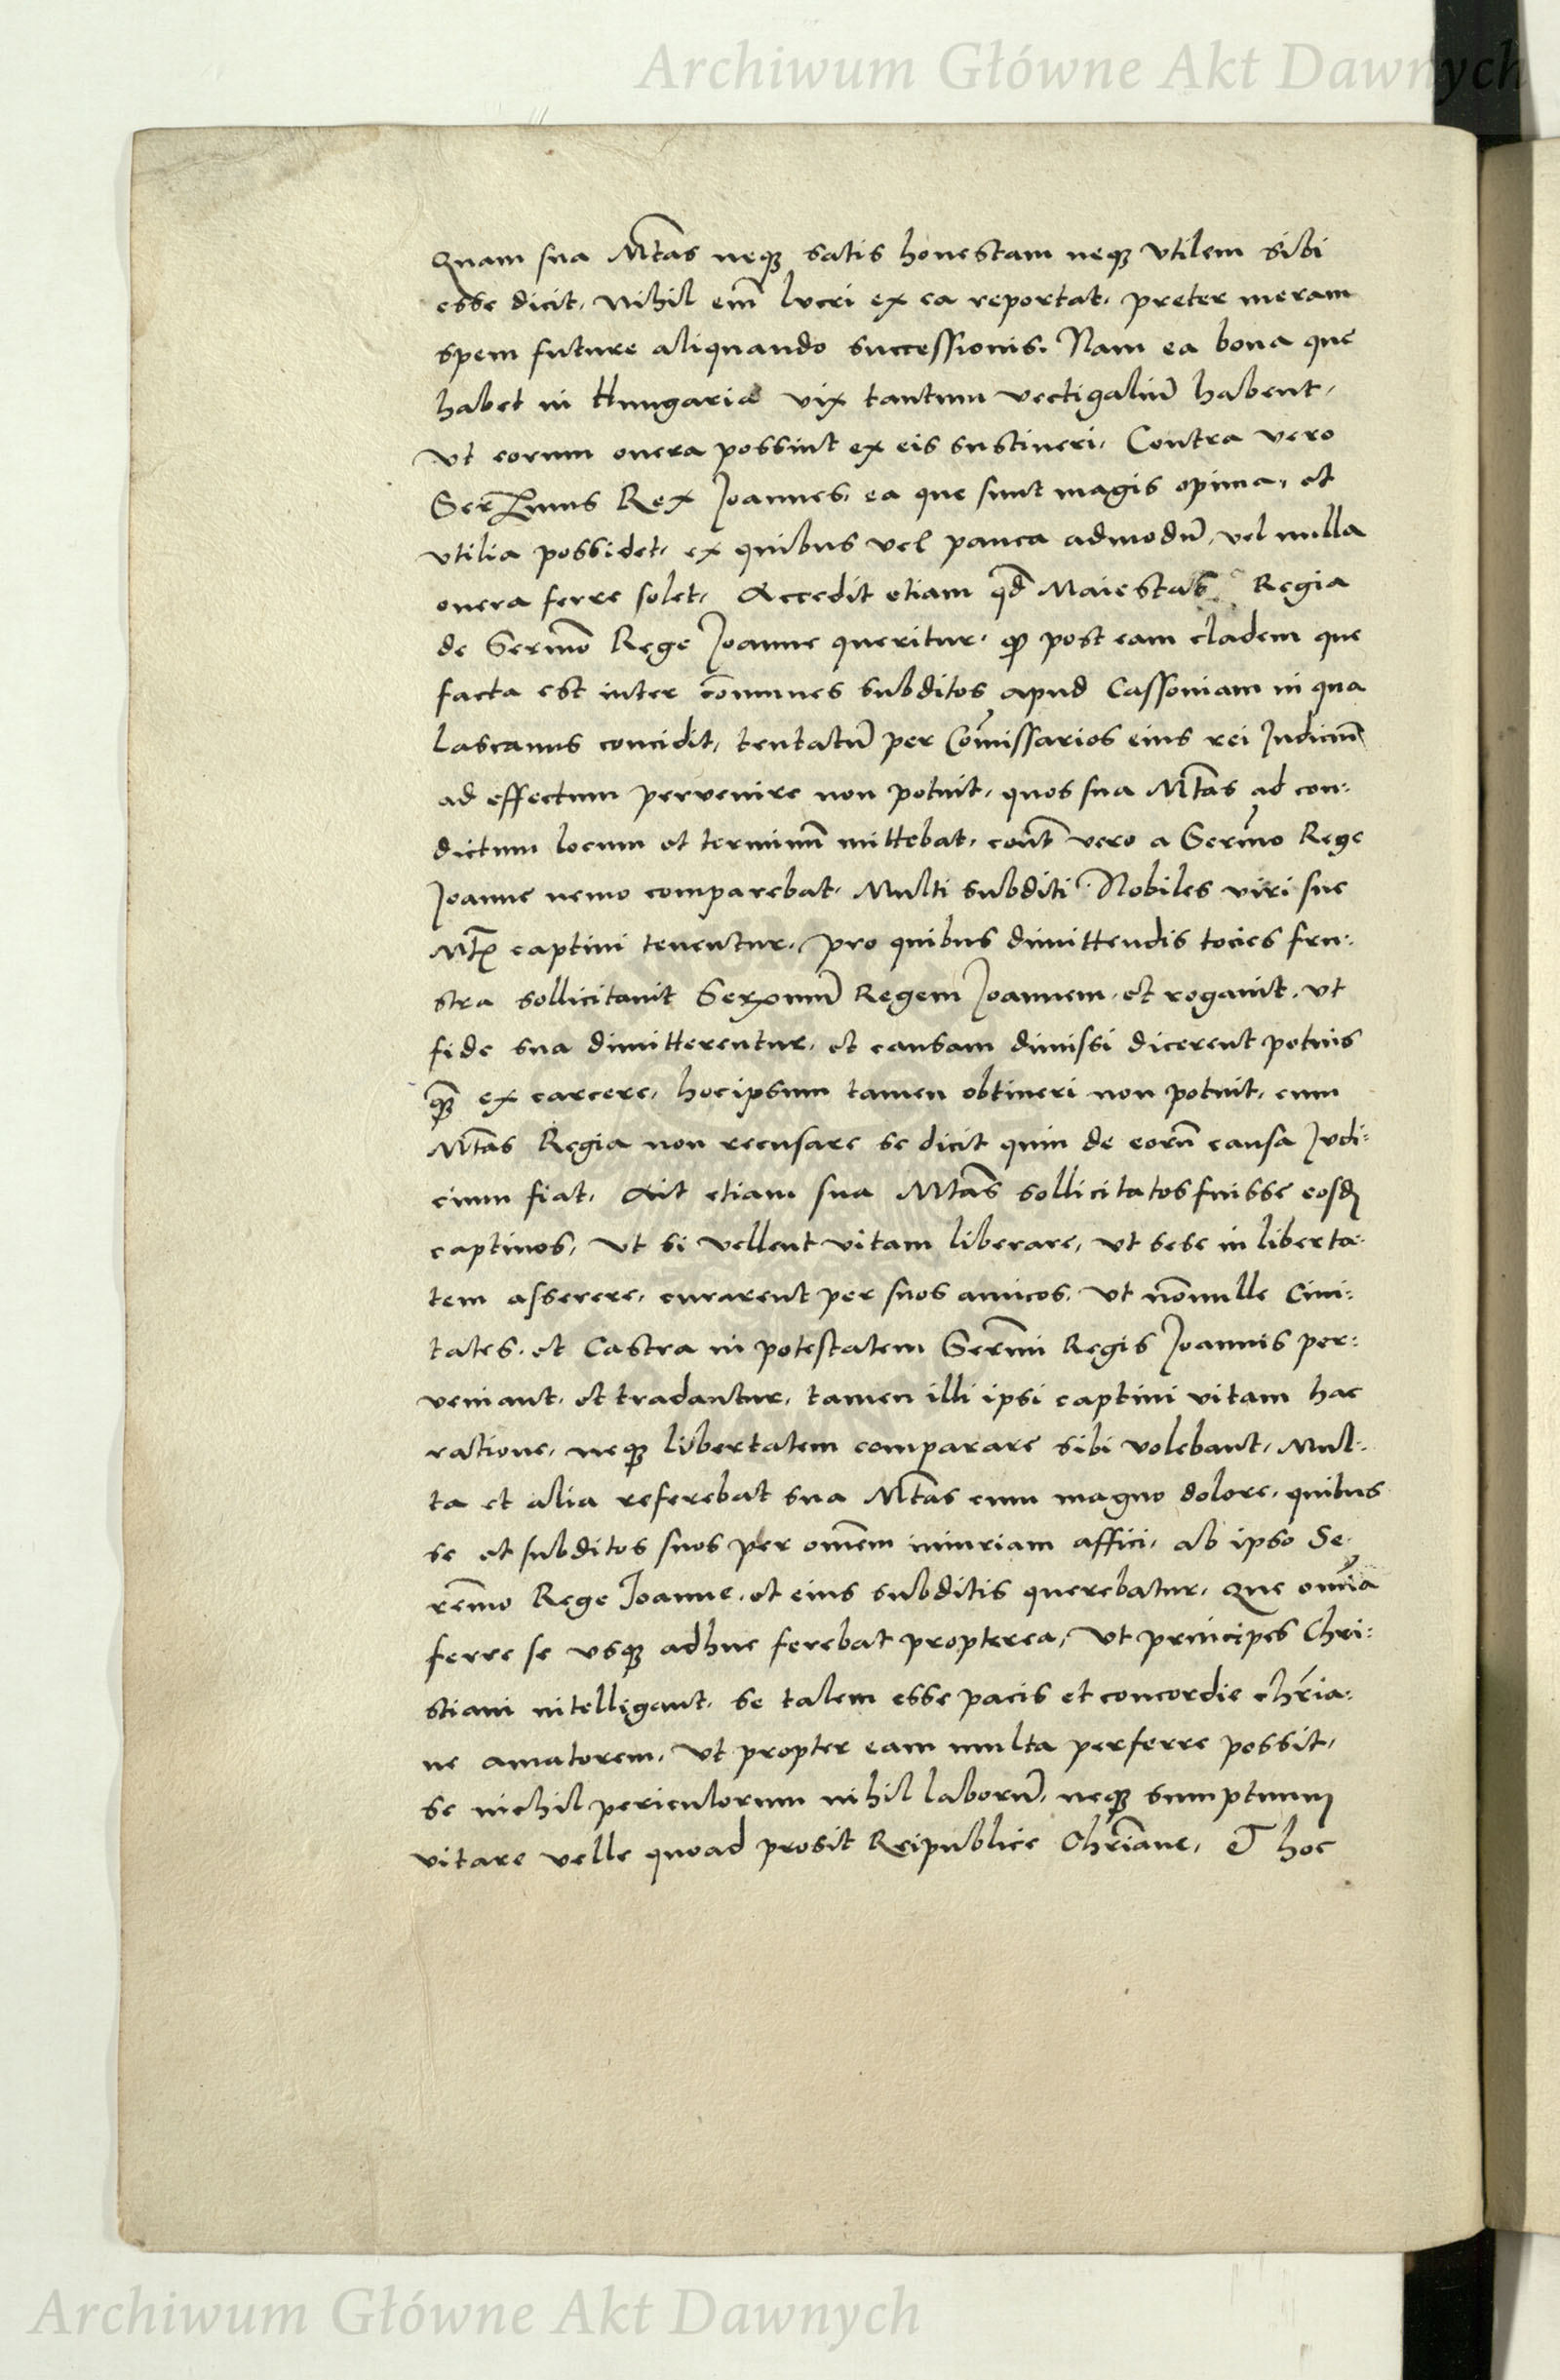 Archiwum Główne Akt Dawnych
Quam sua Mtas neq₃ satis honestam neq₃ vtilem sibi
esse dicit, Nihil em̄ lucri ex ea reportat, preter meram
spem future aliquando successionis. Nam ea bona que
habet in Hungaria vix tantum vectigaliū habent,
vt eorum onera possint ex eis sustineri, Contra vero
Ser̄mus Rex Joannes, ea que sunt magis opima, et
vtilia possidet, ex quibus vel pauca admodū, vel nulla
onera ferre solet, Accedit etiam qd̄ Maiestas Regia
de Sermō Rege Joanne queritur, qp post eam cladem que
facta est inter cōmunes subditos apud Cassoniam in qua
Lascanus concidit, tentatū per Cōmissarios eius rei Judiciū
ad effectum pervenire non potuit, quos sua Mtas ad con:
dictum locum et terminū mittebat, cont̄ vero a Serm̄o Rege
Joanne nemo comparebat, Multi subditi Nobiles viri sue
Mtꝭ captiui tenentur, pro quibus dimittendis tocies fru:
stra sollicitauit Serenmū Regem Joannem, et rogauit, vt
fide sua dimitterentur, et causam dimissi dicerent potius
q₃ ex carcere, hocipsum tamen obtineri non potuit, cum
Mtas Regia non recusare se dicit quin de eorū causa Judi:
cium fiat, Ait etiam sua Mtas sollicitatos fuisse eosd̄
captiuos, vt si vellent vitam liberare, vt sese in liberta:
tem asserere, curarent per suos amicos, vt nōnulle Ciui:
tates, et Castra in potestatem Serm̄i Regis Joannis per:
veniant, et tradantur, tamen illi ipsi captiui vitam hac
ratione, neq₃ libertatem comparare sibi volebant, Mul:
ta et alia referebat sua Mtas cum magno dolore, quibus
se et subditos suos per om̄em iniuriam affici, ab ipso Se
rem̄o Rege Joanne, et eius subditis querebatur, que om̄ia
ferre se vsq₃ adhuc ferebat propterea, vt principes Chri:
stiani intelligant, se talem esse pacis et concordie chr̄ia:
ne amatorem, vt propter eam multa perferre possit,
se nichil periculorum nihil laborū, neq₃ sumptuum
vitare velle quoad prosit Reipublice Chr̄iane, Et hoc
Archiwum Główne Akt Dawnych